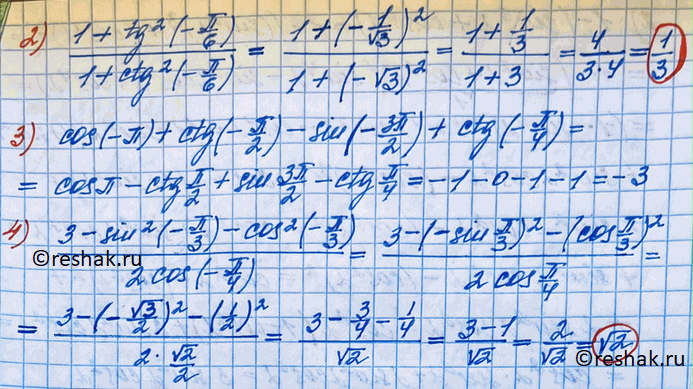 2) (1 + tg²(-π/6)) / (1 + ctg²(-π/6)) = (1 + (-1/√3)²) / (1 + (-√3)²) = (1 + 1/3) / (1 + 3) = 4/(3·4) = 1/3
3) cos(-π) + ctg(-π/2) - sin(-3π/2) + ctg(-π/4) =
= cosπ - ctg π/2 + sin 3π/2 - ctg π/4 = -1 - 0 - 1 - 1 = -3
4) (3 - sin²(-π/3) - cos²(-π/3)) / (2 cos(-π/4)) = (3 - (-sin π/3)² - (cos π/3)²) / (2 cos π/4) =
©reshak.ru
= (3 - (-√3/2)² - (1/2)²) / (2 · √2/2) = (3 - 3/4 - 1/4) / √2 = (3 - 1)/√2 = 2/√2 = √2
©reshak.ru